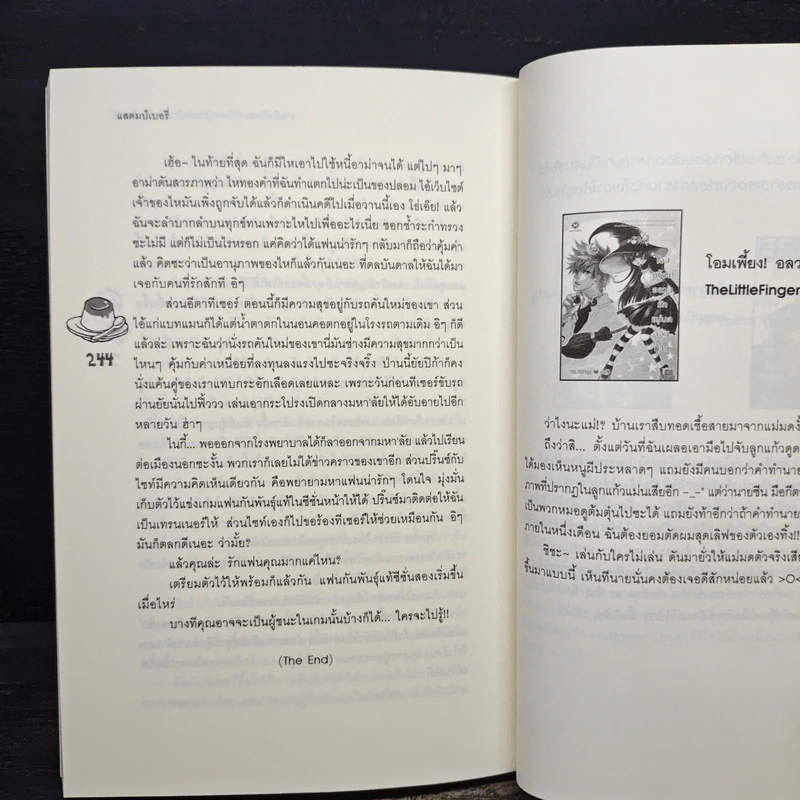 แสตมป์เบอรี่
เฮ้อ~ ในท้ายที่สุด ฉันก็มีไหเอาไปใช้หนี้อาม่าจนได้ แต่ไปๆ มาๆ
อาม่าดันสารภาพว่า ไหทองคำที่ฉันทำแตกไปน่ะเป็นของปลอม ไอ้เว็บไซต์
เจ้าของไหมันเพิ่งถูกจับได้แล้วก็ดำเนินคดีไปเมื่อวานนี้เอง โธ่เอ๊ย! แล้ว
ฉันจะลำบากลำบนทุกข์ทนเพราะไหไปเพื่ออะไรเนี่ย ชอกช้ำระกำทรวง
ซะไม่มี แต่ก็ไม่เป็นไรหรอก แค่คิดว่าได้แฟนน่ารักๆ กลับมาก็ถือว่าคุ้มค่า
แล้ว คิดซะว่าเป็นอานุภาพของไหก็แล้วกันเนอะ ที่ดลบันดาลให้ฉันได้มา
เจอกับคนที่รักสักที อิๆ
ส่วนอีตาทีเซอร์ ตอนนี้ก็มีความสุขอยู่กับรถคันใหม่ของเขา ส่วน
ไอ้แก่แบทแมนก็ได้แต่น้ำตาตกในนอนคอตกอยู่ในโรงรถตามเดิม อิๆ ก็ดี
แล้วล่ะ เพราะฉันว่านั่งรถคันใหม่ของเขานี่มันช่างมีความสุขมากกว่าเป็น
ไหนๆ คุ้มกับค่าเหนื่อยที่ลงทุนลงแรงไปซะจริงจริ๊ง ป่านนี้ยัยปิก้าก็คง
นั่งแค้นคู่ของเราแทบกระอักเลือดเลยแหละ เพราะวันก่อนทีเซอร์ขับรถ
ผ่านยัยนั่นไปฟิ้ววว เล่นเอากระโปรงเปิดกลางมหา'ลัยให้ได้อับอายไปอีก
หลายวัน ฮ่าๆ
ไนกี้... พอออกจากโรงพยาบาลได้ก็ลาออกจากมหา'ลัย แล้วไปเรียน
ต่อเมืองนอกซะงั้น พวกเราก็เลยไม่ได้ข่าวคราวของเขาอีก ส่วนปริ๊นซ์กับ
ไซท์มีความคิดเห็นเดียวกัน คือพยายามหาแฟนน่ารักๆ โดนใจ มุ่งมั่น
เก็บตัวไว้แข่งเกมแฟนกันพันธุ์แท้ในซีซั่นหน้าให้ได้ ปริ๊นซ์มาติดต่อให้ฉัน
เป็นเทรนเนอร์ให้ ส่วนไซท์เองก็ไปขอร้องทีเซอร์ให้ช่วยเหมือนกัน อิๆ
มันก็ตลกดีเนอะ ว่ามั้ย?
แล้วคุณล่ะ รักแฟนคุณมากแค่ไหน?
เตรียมตัวไว้ให้พร้อมก็แล้วกัน แฟนกันพันธุ์แท้ซีซั่นสองเริ่มขึ้น
เมื่อไหร่
บางทีคุณอาจจะเป็นผู้ชนะในเกมนั้นบ้างก็ได้... ใครจะไปรู้!!
(The End)
244
โอมเพี้ยง! อลว
TheLittleFinger
ว่าไงนะแม่!? บ้านเราสืบทอดเชื้อสายมาจากแม่มดงั้
ถึงว่าสิ... ตั้งแต่วันที่ฉันเผลอเอามือไปจับลูกแก้วดูด
ได้มองเห็นหนูผีประหลาดๆ แถมยังมีคนบอกว่าคำทำนาย
ภาพที่ปรากฏในลูกแก้วแม่นเสียอีก -_-" แต่ว่านายซีน มือกีต
เป็นพวกหมอดูต้มตุ๋นไปซะได้ แถมยังท้าอีกว่าถ้าคำทำนาย
ภายในหนึ่งเดือน ฉันต้องยอมตัดผมสุดเลิฟของตัวเองทิ้ง!!
ชิชะ~ เล่นกับใครไม่เล่น ดันมายั่วให้แม่มดตัวจริงเสีย
ขึ้นมาแบบนี้ เห็นทีนายนั่นคงต้องเจอดีสักหน่อยแล้ว >O<